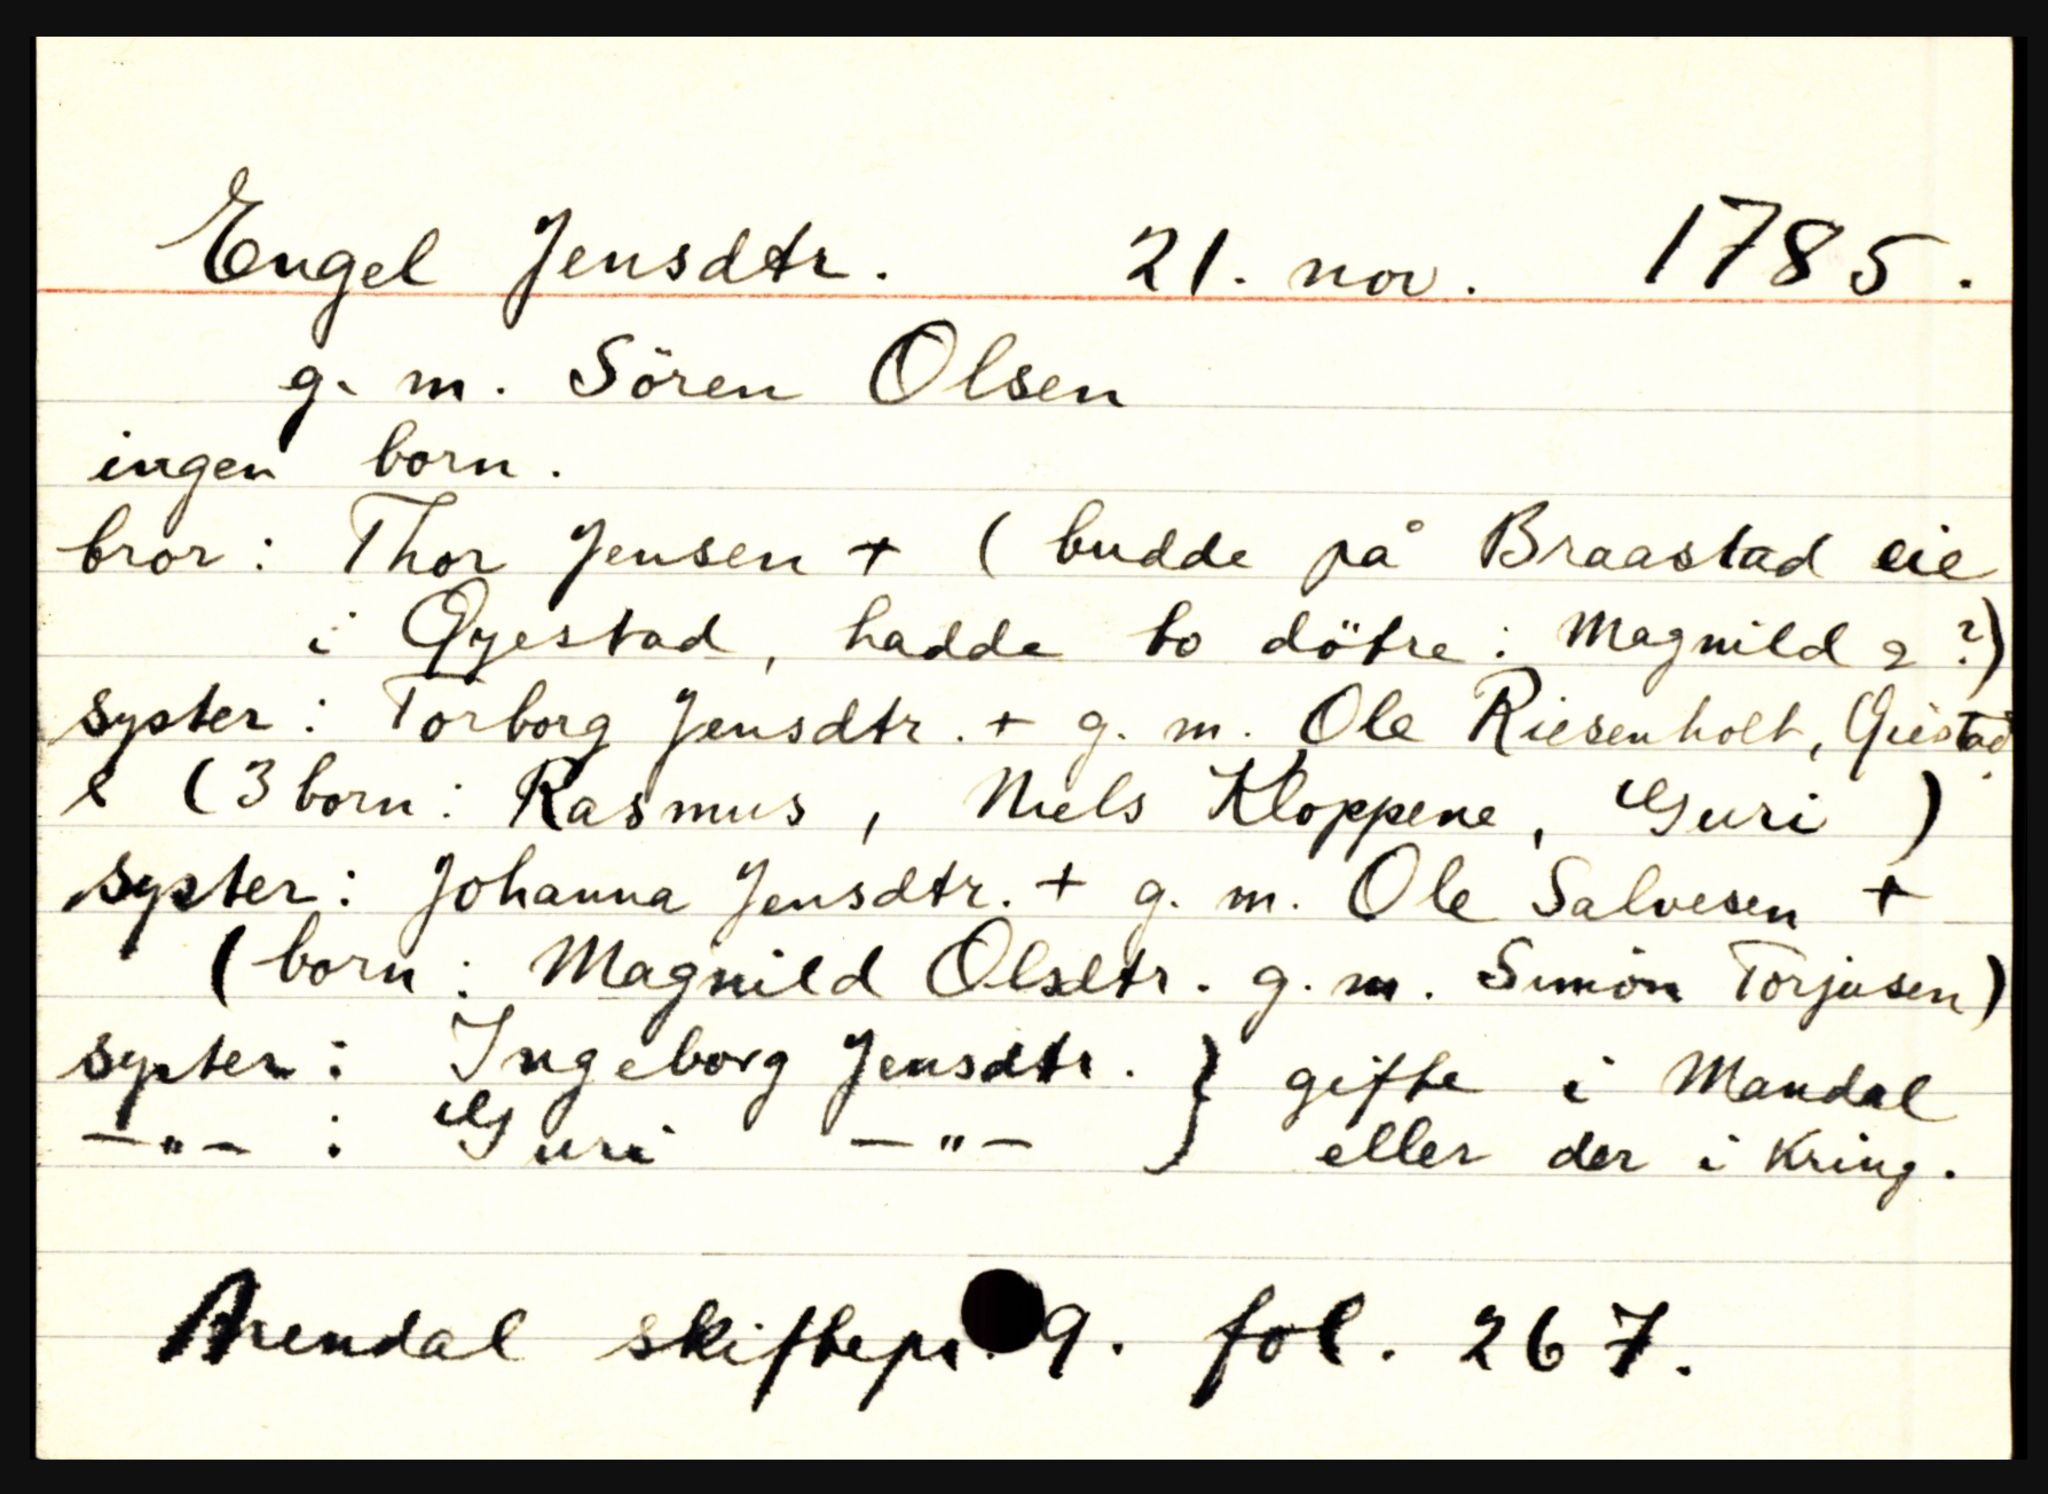 Engel Jensdtr. 21. nov. 1785.
g. m. Sören Olsen
ingen born.
bror: Thor Jensen + (budde på Braastad eie
i Øyestad, hadde to dötre: Magnild & ?)
syster: Torborg Jensdtr. + g. m. Ole Riesenholt, Øiestad
& (3 born: Rasmus, Niels Kloppene, Guri)
syster: Johanna Jensdtr. + g. m. Ole Salvesen +
(born: Magnild Olsdtr. g. m. Simon Torjusen)
syster: Ingeborg Jensdtr. } gifte i Mandal
—"— : Guri —"— } eller der i kring.
Arendal skiftepr. 9. fol. 267.